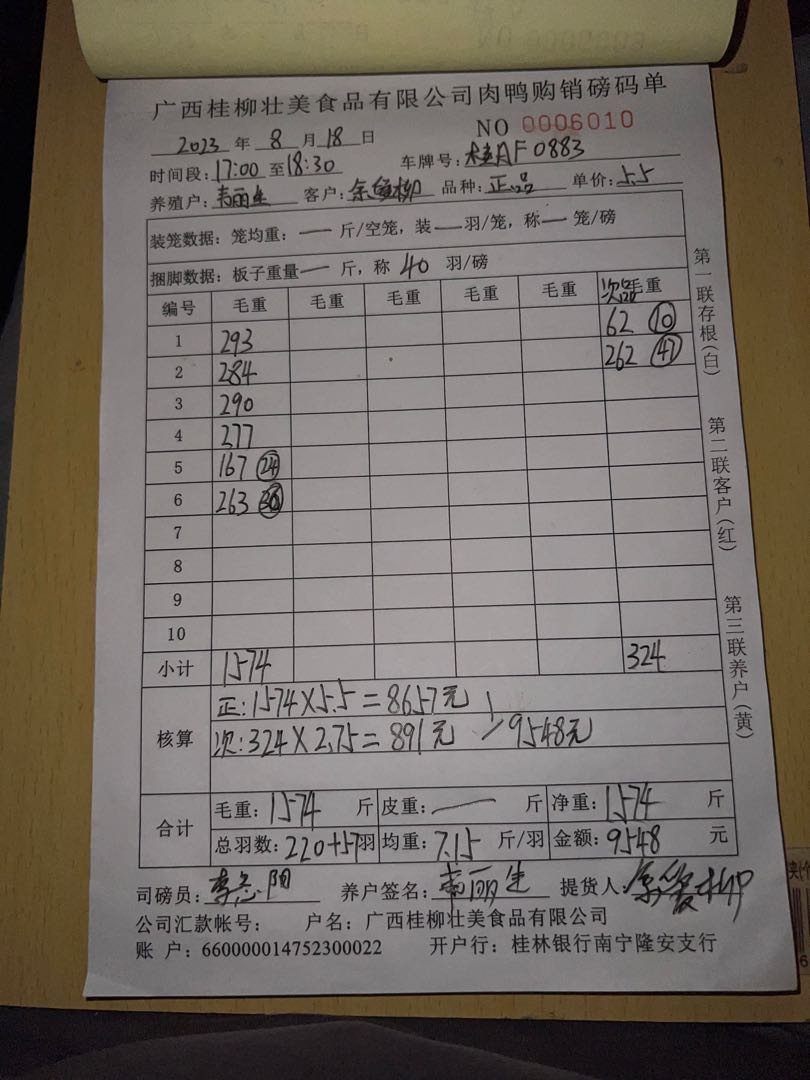 广西桂柳壮美食品有限公司肉鸭购销磅码单
2023 年 8 月 18 日 NO 0006010
时间段: 17:00 至 18:30 车牌号: 桂AF0883
养殖户: 韦丽生 客户: 品种: 正品 单价: 5.5
装笼数据: 笼均重: — 斤/空笼, 装 — 羽/笼, 称 — 笼/磅
捆脚数据: 板子重量 — 斤, 称 40 羽/磅
编号 毛重 毛重 毛重 毛重 毛重 次品毛重
1 293 62 10
2 284 262 47
3 290
4 277
5 167 24
6 263 36
7
8
9
10
小计 1574 324
核算
正: 1574×5.5=8657元
次: 324×2.75=891元 9548元
合计
毛重: 1574 斤 皮重: — 斤 净重: 1574 斤
总羽数: 220+57羽 均重: 7.15 斤/羽 金额: 9548 元
司磅员: 李志阳 养户签名: 韦丽生 提货人:
公司汇款帐号: 户名: 广西桂柳壮美食品有限公司
账 户: 660000014752300022 开户行: 桂林银行南宁隆安支行
第一联存根(白)
第二联客户(红)
第三联养户(黄)